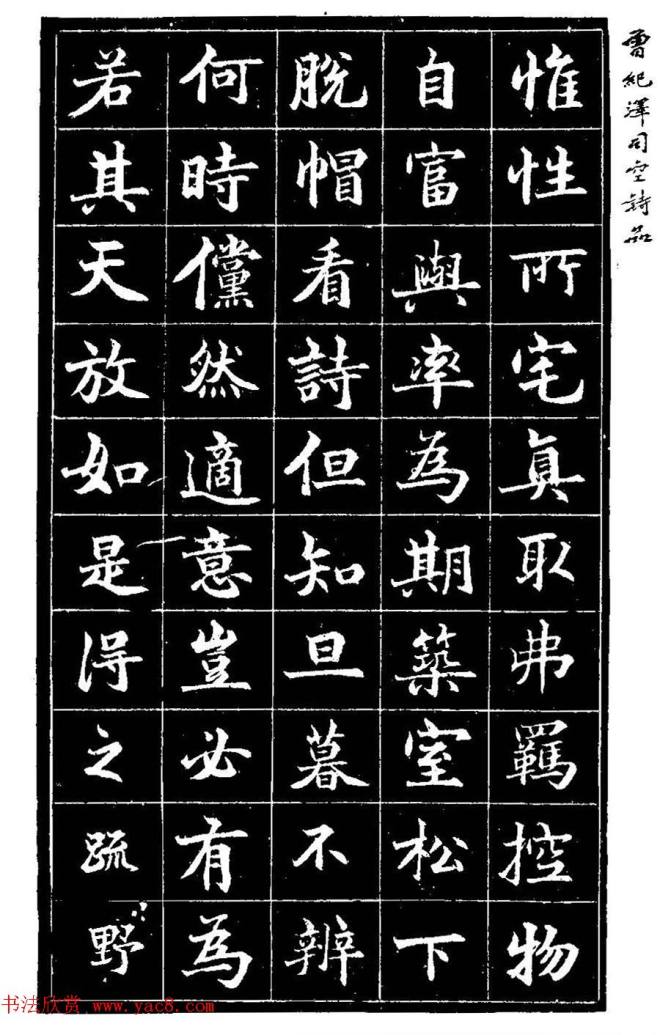 曾紀澤司空詩品
惟性所宅真取弗羈控物
自富與率為期築室松下
脫帽看詩但知旦暮不辨
何時儻然適意豈必有為
若其天放如是得之疏野
书法欣赏 www.yac8.com